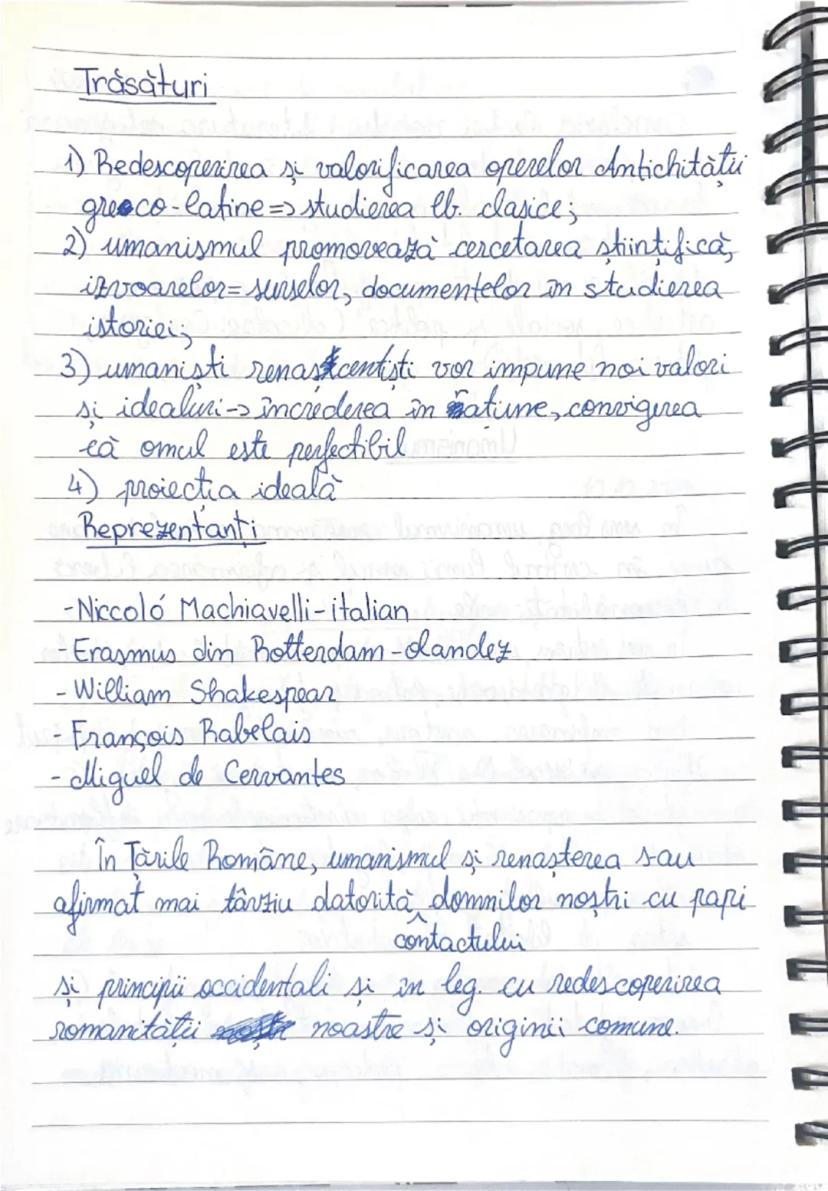 Trăsături
1) Redescoperirea și valorificarea operelor Antichității
greco-latine => studierea lb. clasice;
2) umanismul promovează cercetarea științifică,
izvoarelor = surselor, documentelor în studierea
istoriei;
3) umaniști renascentiști vor impune noi valori
și idealuri -> încrederea în rațiune, convigerea
că omul este perfectibil
4) proiecția ideală
Reprezentanți
- Niccoló Machiavelli - italian
- Erasmus din Rotterdam - olandez
- William Shakespear
- François Rabelais
- Miguel de Cervantes
În Țările Române, umanismul și renașterea s-au
afirmat mai târziu datorită domnilor noștri cu papi
contactului
și principii occidentali și în leg. cu redescoperirea
romanității noastre și originii comune.